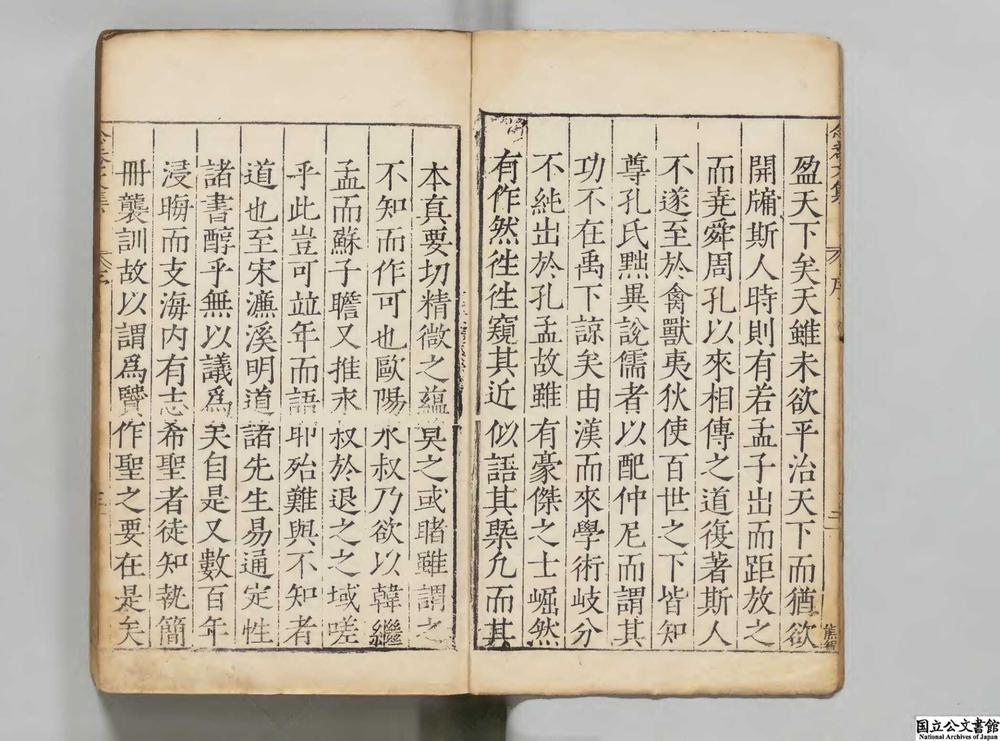 盈天下矣天雖未欲平治天下而猶欲
開牖斯人時則有若孟子出而距放之
而堯舜周孔以來相傳之道復著斯人
不遂至於禽獸夷狄使百世之下皆知
尊孔氏黜異說儒者以配仲尼而謂其
功不在禹下諒矣由漢而來學術岐分
不純出於孔孟故雖有豪傑之士崛然
有作然徃徃窺其近似語其槩凢而其
本真要切精微之蘊莫之或睹雖謂之
不知而作可也歐陽永叔乃欲以韓繼
孟而蘇子瞻又推永叔於退之之域嗟
乎此豈可竝年而語耶殆難與不知者
道也至宋濂溪明道諸先生易通定性
諸書醇乎無以議為矣自是又數百年
浸晦而支海内有志希聖者徒知執簡
冊襲訓故以謂為贒作聖之要在是矣
国立公文書館
National Archives of Japan